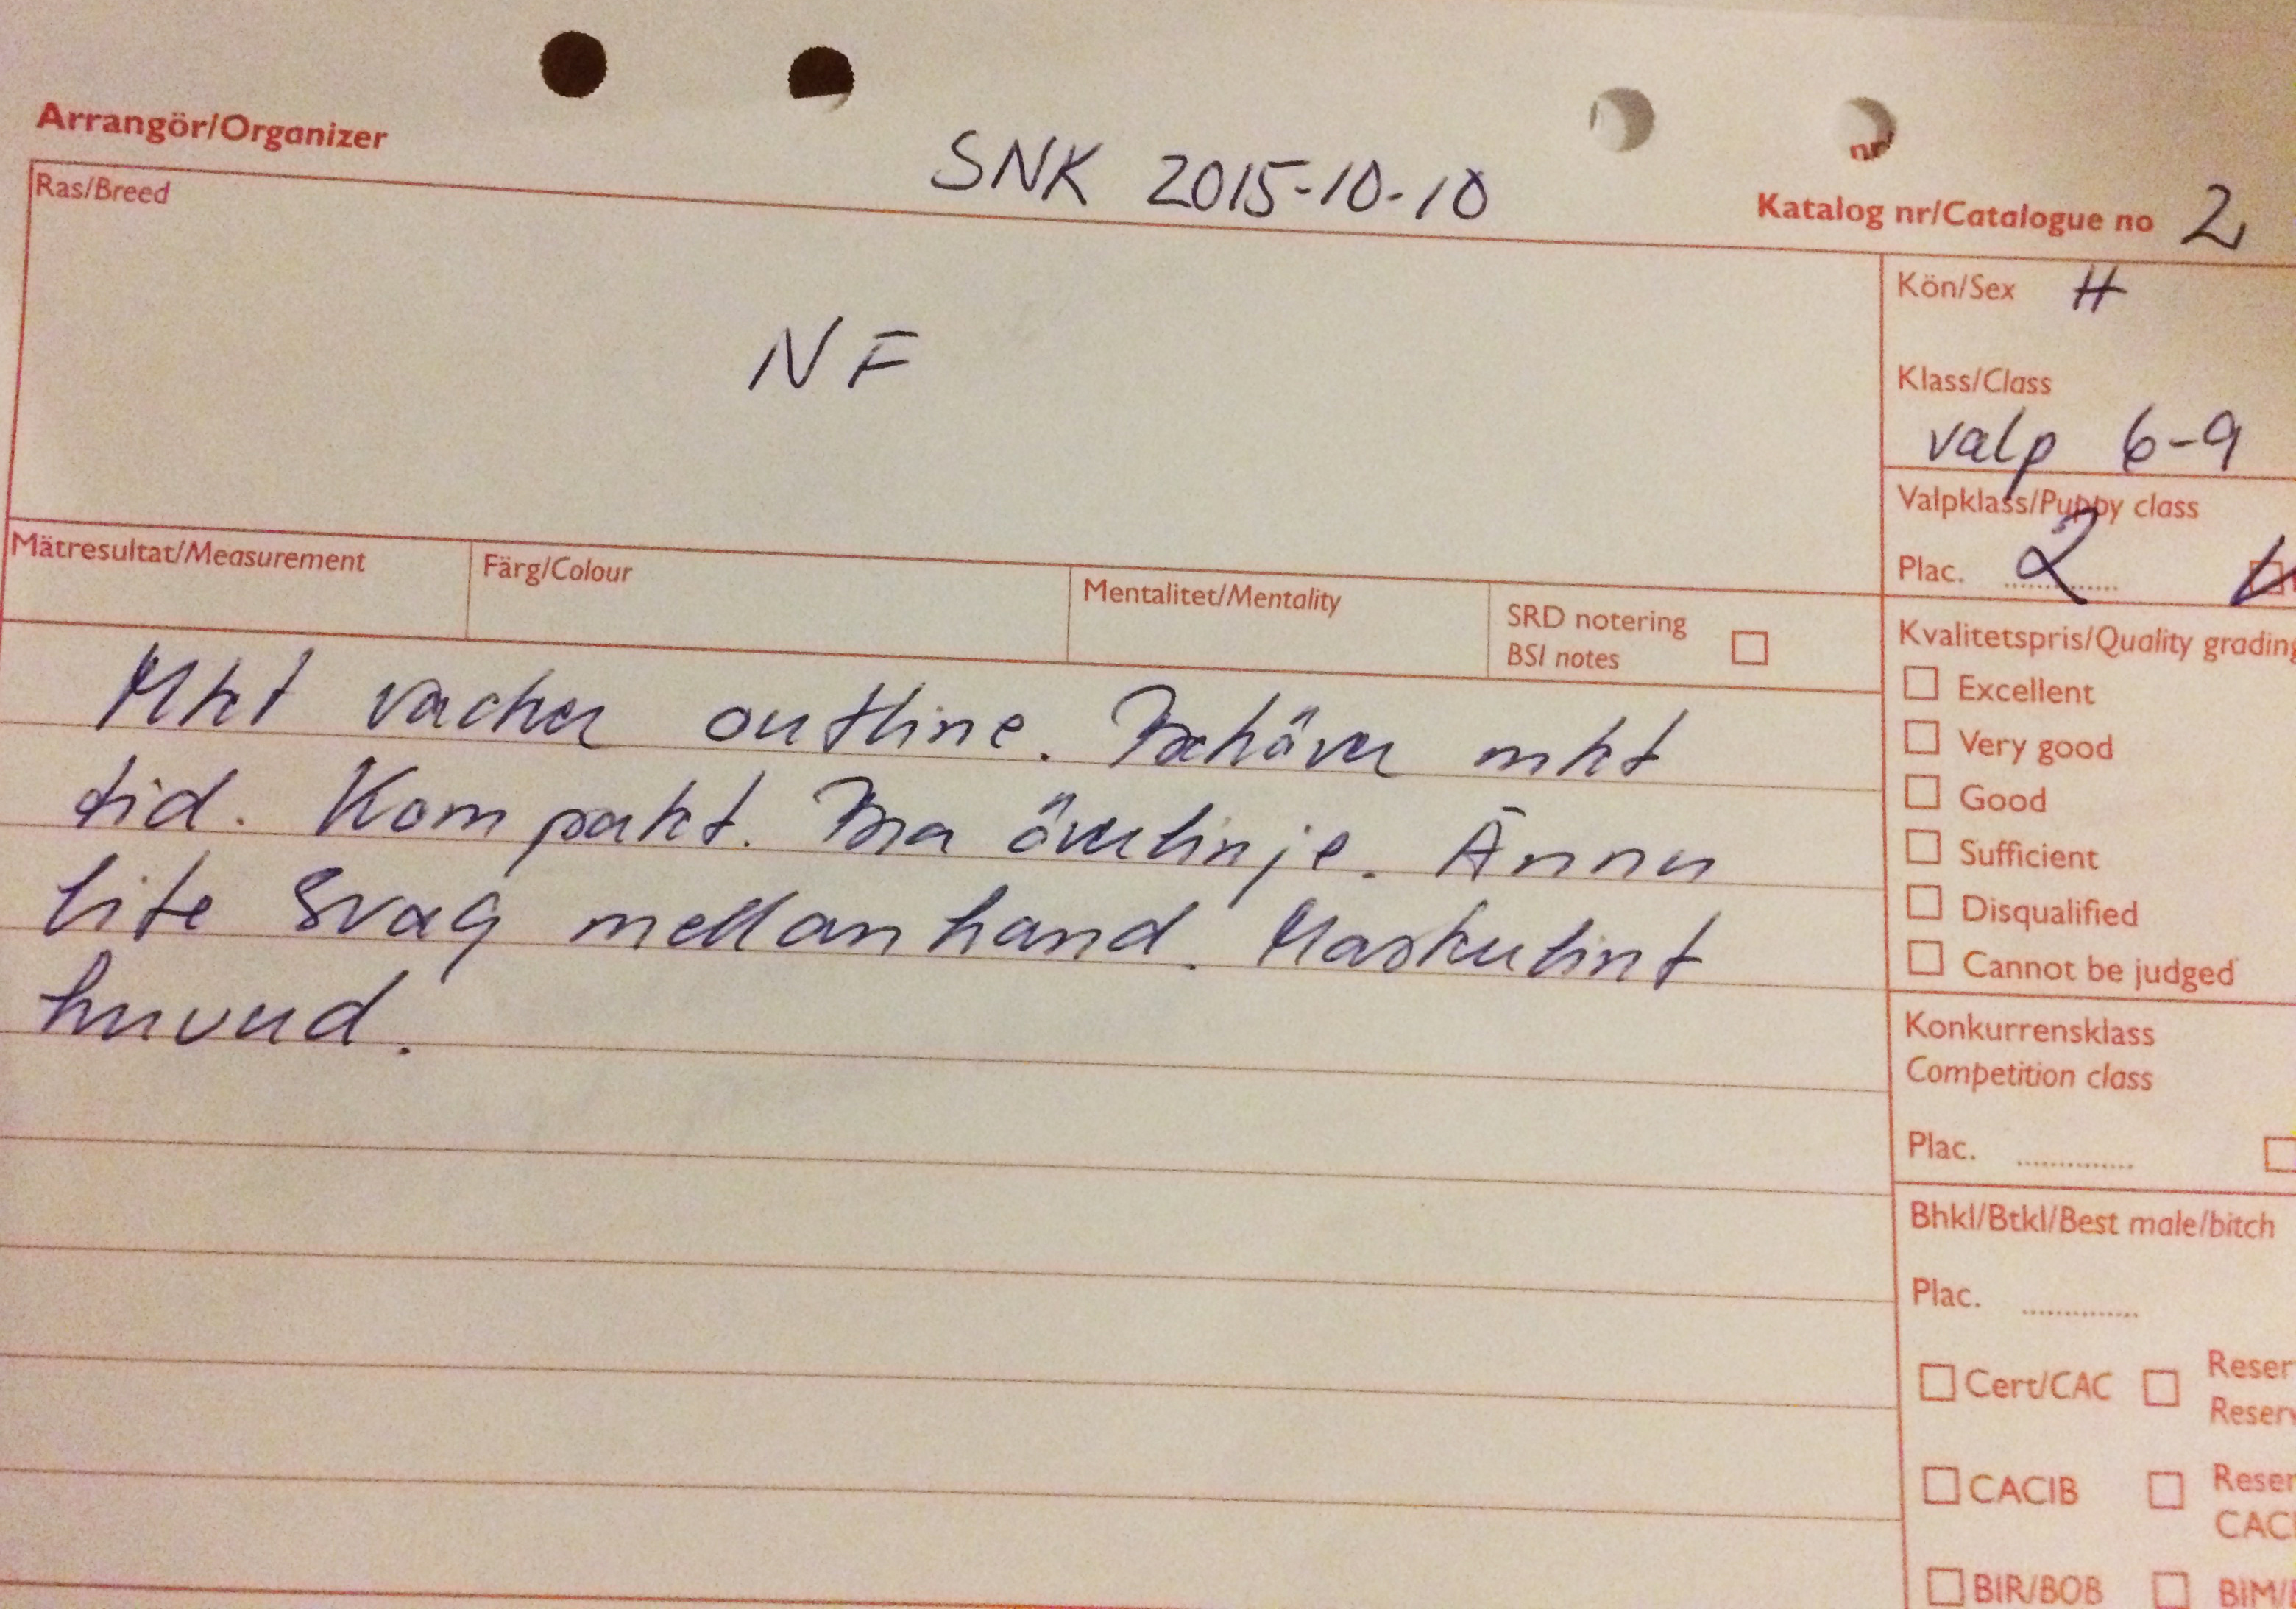 Arrangör/Organizer
SNK 2015-10-10
nr
Katalog nr/Catalogue no 2
Ras/Breed
NF
Kön/Sex H
Klass/Class
valp 6-9
Valpklass/Puppy class
Plac. 2
Mätresultat/Measurement
Färg/Colour
Mentalitet/Mentality
SRD notering
BSI notes
Mkt vacker outline. Behöver mkt
tid. Kompakt. Bra överlinje. Ännu
lite svag mellanhand. Maskulint
huvud.
Kvalitetspris/Quality grading
Excellent
Very good
Good
Sufficient
Disqualified
Cannot be judged
Konkurrensklass
Competition class
Plac. ..............
Bhkl/Btkl/Best male/bitch
Plac. ..............
Cert/CAC
CACIB
BIR/BOB